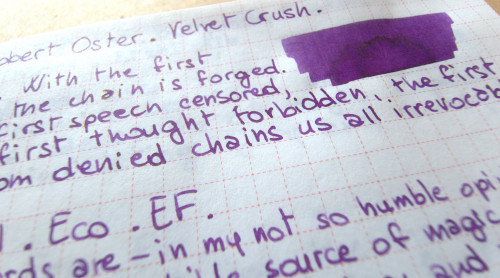 obert Oster. Velvet Crush.
With the first
the chain is forged.
first speech censored,
first thought forbidden, the first
om denied chains us all irrevocab
. Eco. EF.
rds are - in my not so humble opi
source of magic
and